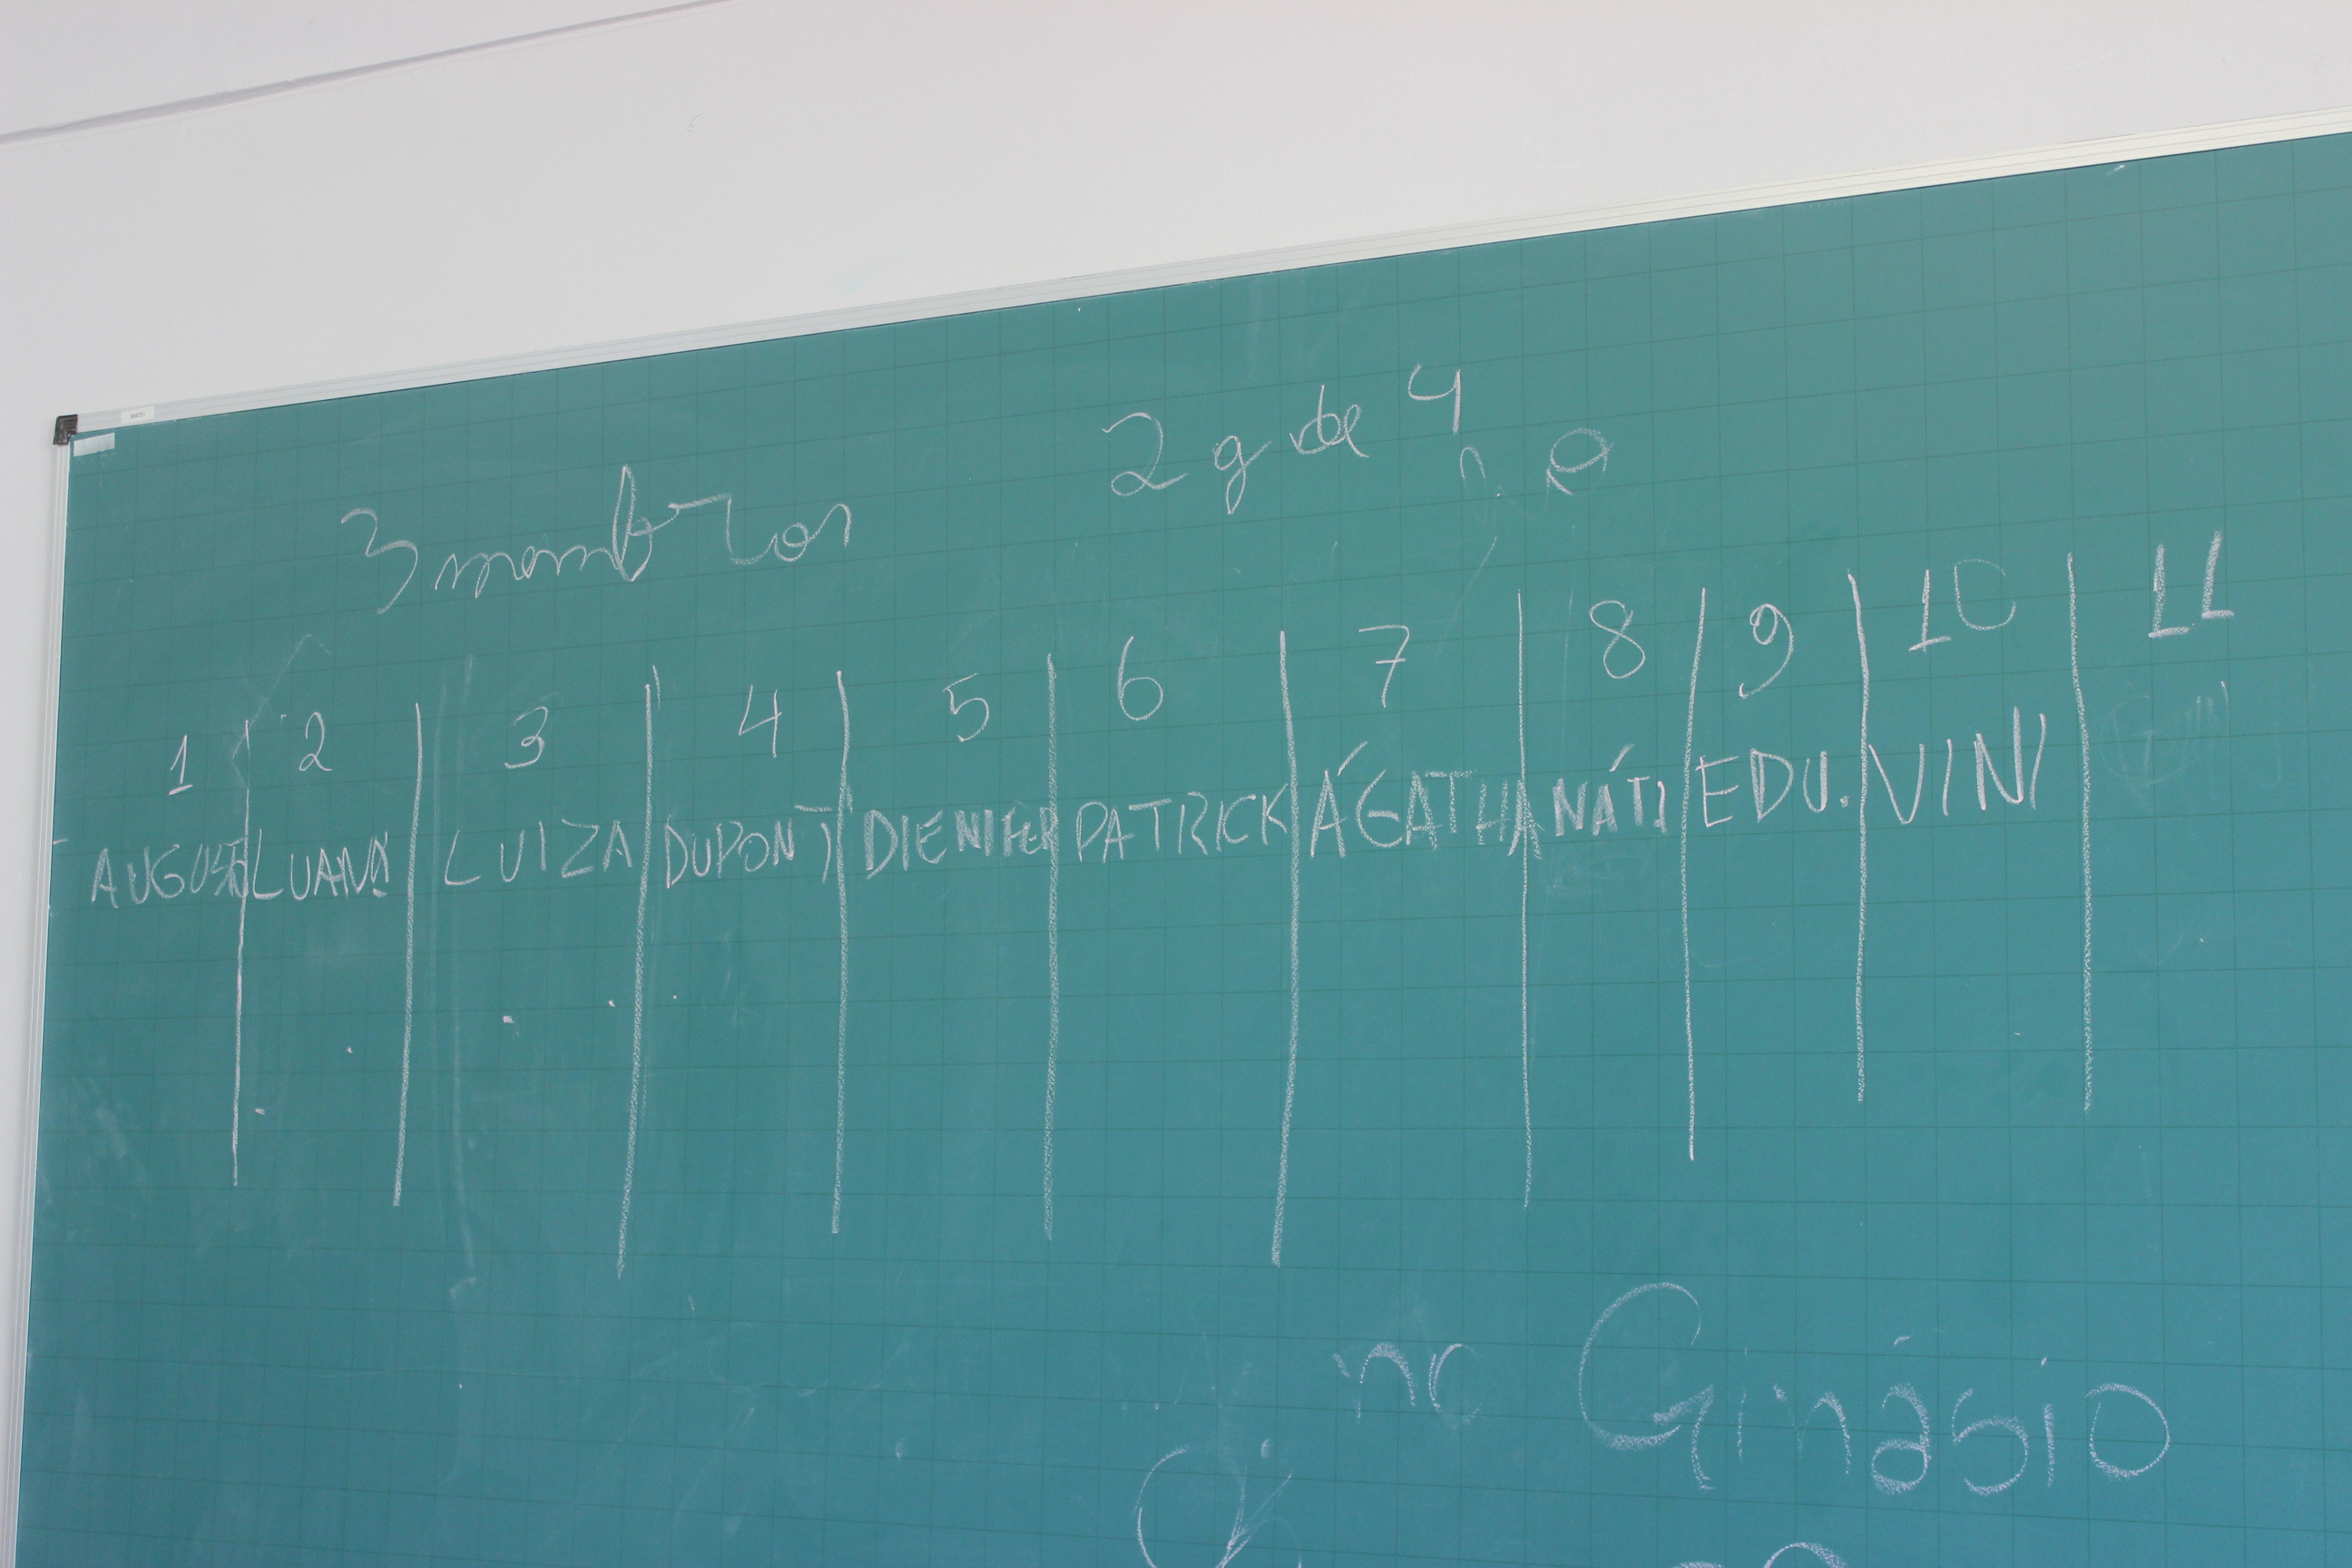 2 g de 4
3 membros
1 2 3 4 5 6 7 8 9 10 11
AUGUSTO LUANA LUIZA DUPONT DIENIFER PATRICK ÁGATHA NÁTI EDU. VINI
no Ginásio